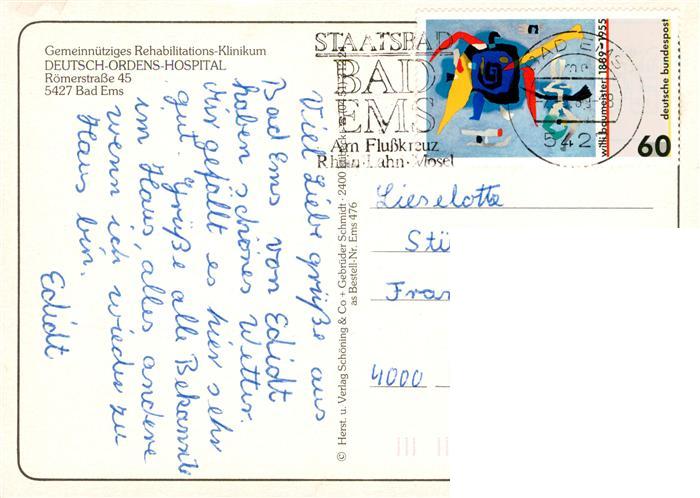 Gemeinnütziges Rehabilitations-Klinikum
DEUTSCH-ORDENS-HOSPITAL
Römerstraße 45
5427 Bad Ems
Viel Liebe grüße aus
Bad Ems von Edidt
haben schönes Wetter.
Mir gefällt es hier sehr
gut Grüße alle Bekannte
im Haus, alles andere
wenn ich wieder zu
Haus bin.
Edidt
© Herst. u. Verlag Schöning & Co + Gebrüder Schmidt · 2400 Lübeck
as Bestell-Nr. Ems 476
STAATSBAD
BAD
EMS
Am Flußkreuz
Rhein-Lahn-Mosel
BAD EMS
542
willi baumeister 1889-1955
deutsche bundespost
60
Lieselotte
Stü
Fran
4000